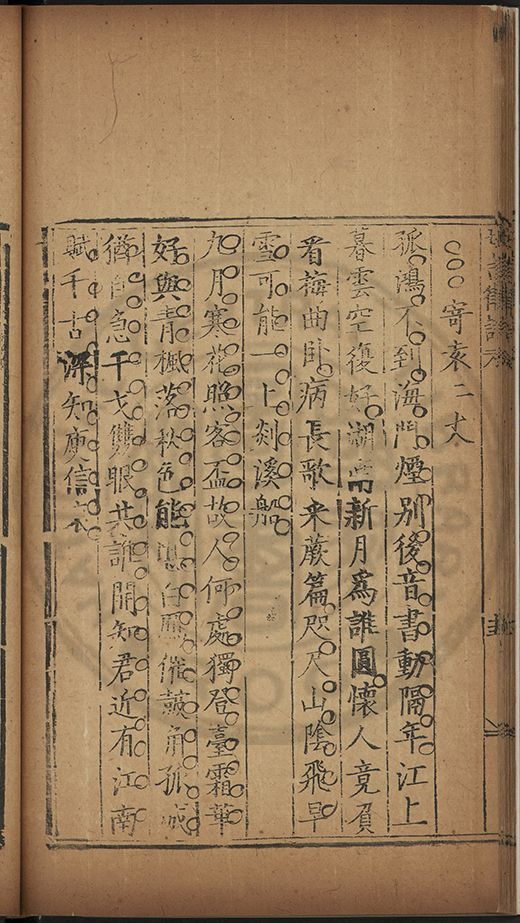 言律詩
○○○寄袁二丈
孤鴻不到海門煙別後音書動隔年江上
暮雲空復好湖南新月爲誰圓懷人竟負
看梅曲臥病長歌采蕨篇咫尺山陰飛早
雪可能一上剡溪船
九月寒花照客盃故人何處獨登臺霜華
好與青楓落秋色能白鴈催鼓角孤城
猶自急干戈雙眼共誰開知君近有江南
賦千古深知庾信哀